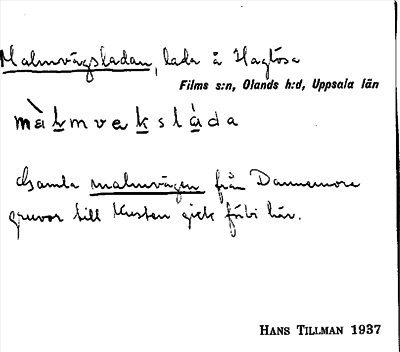 Malmvägsladan, lada å Hagtösa
Films s:n, Olands h:d, Uppsala län
màḷmvękslàda
Gamla malmvägen från Dannemora
gruvor till kusten gick förbi här.
HANS TILLMAN 1937